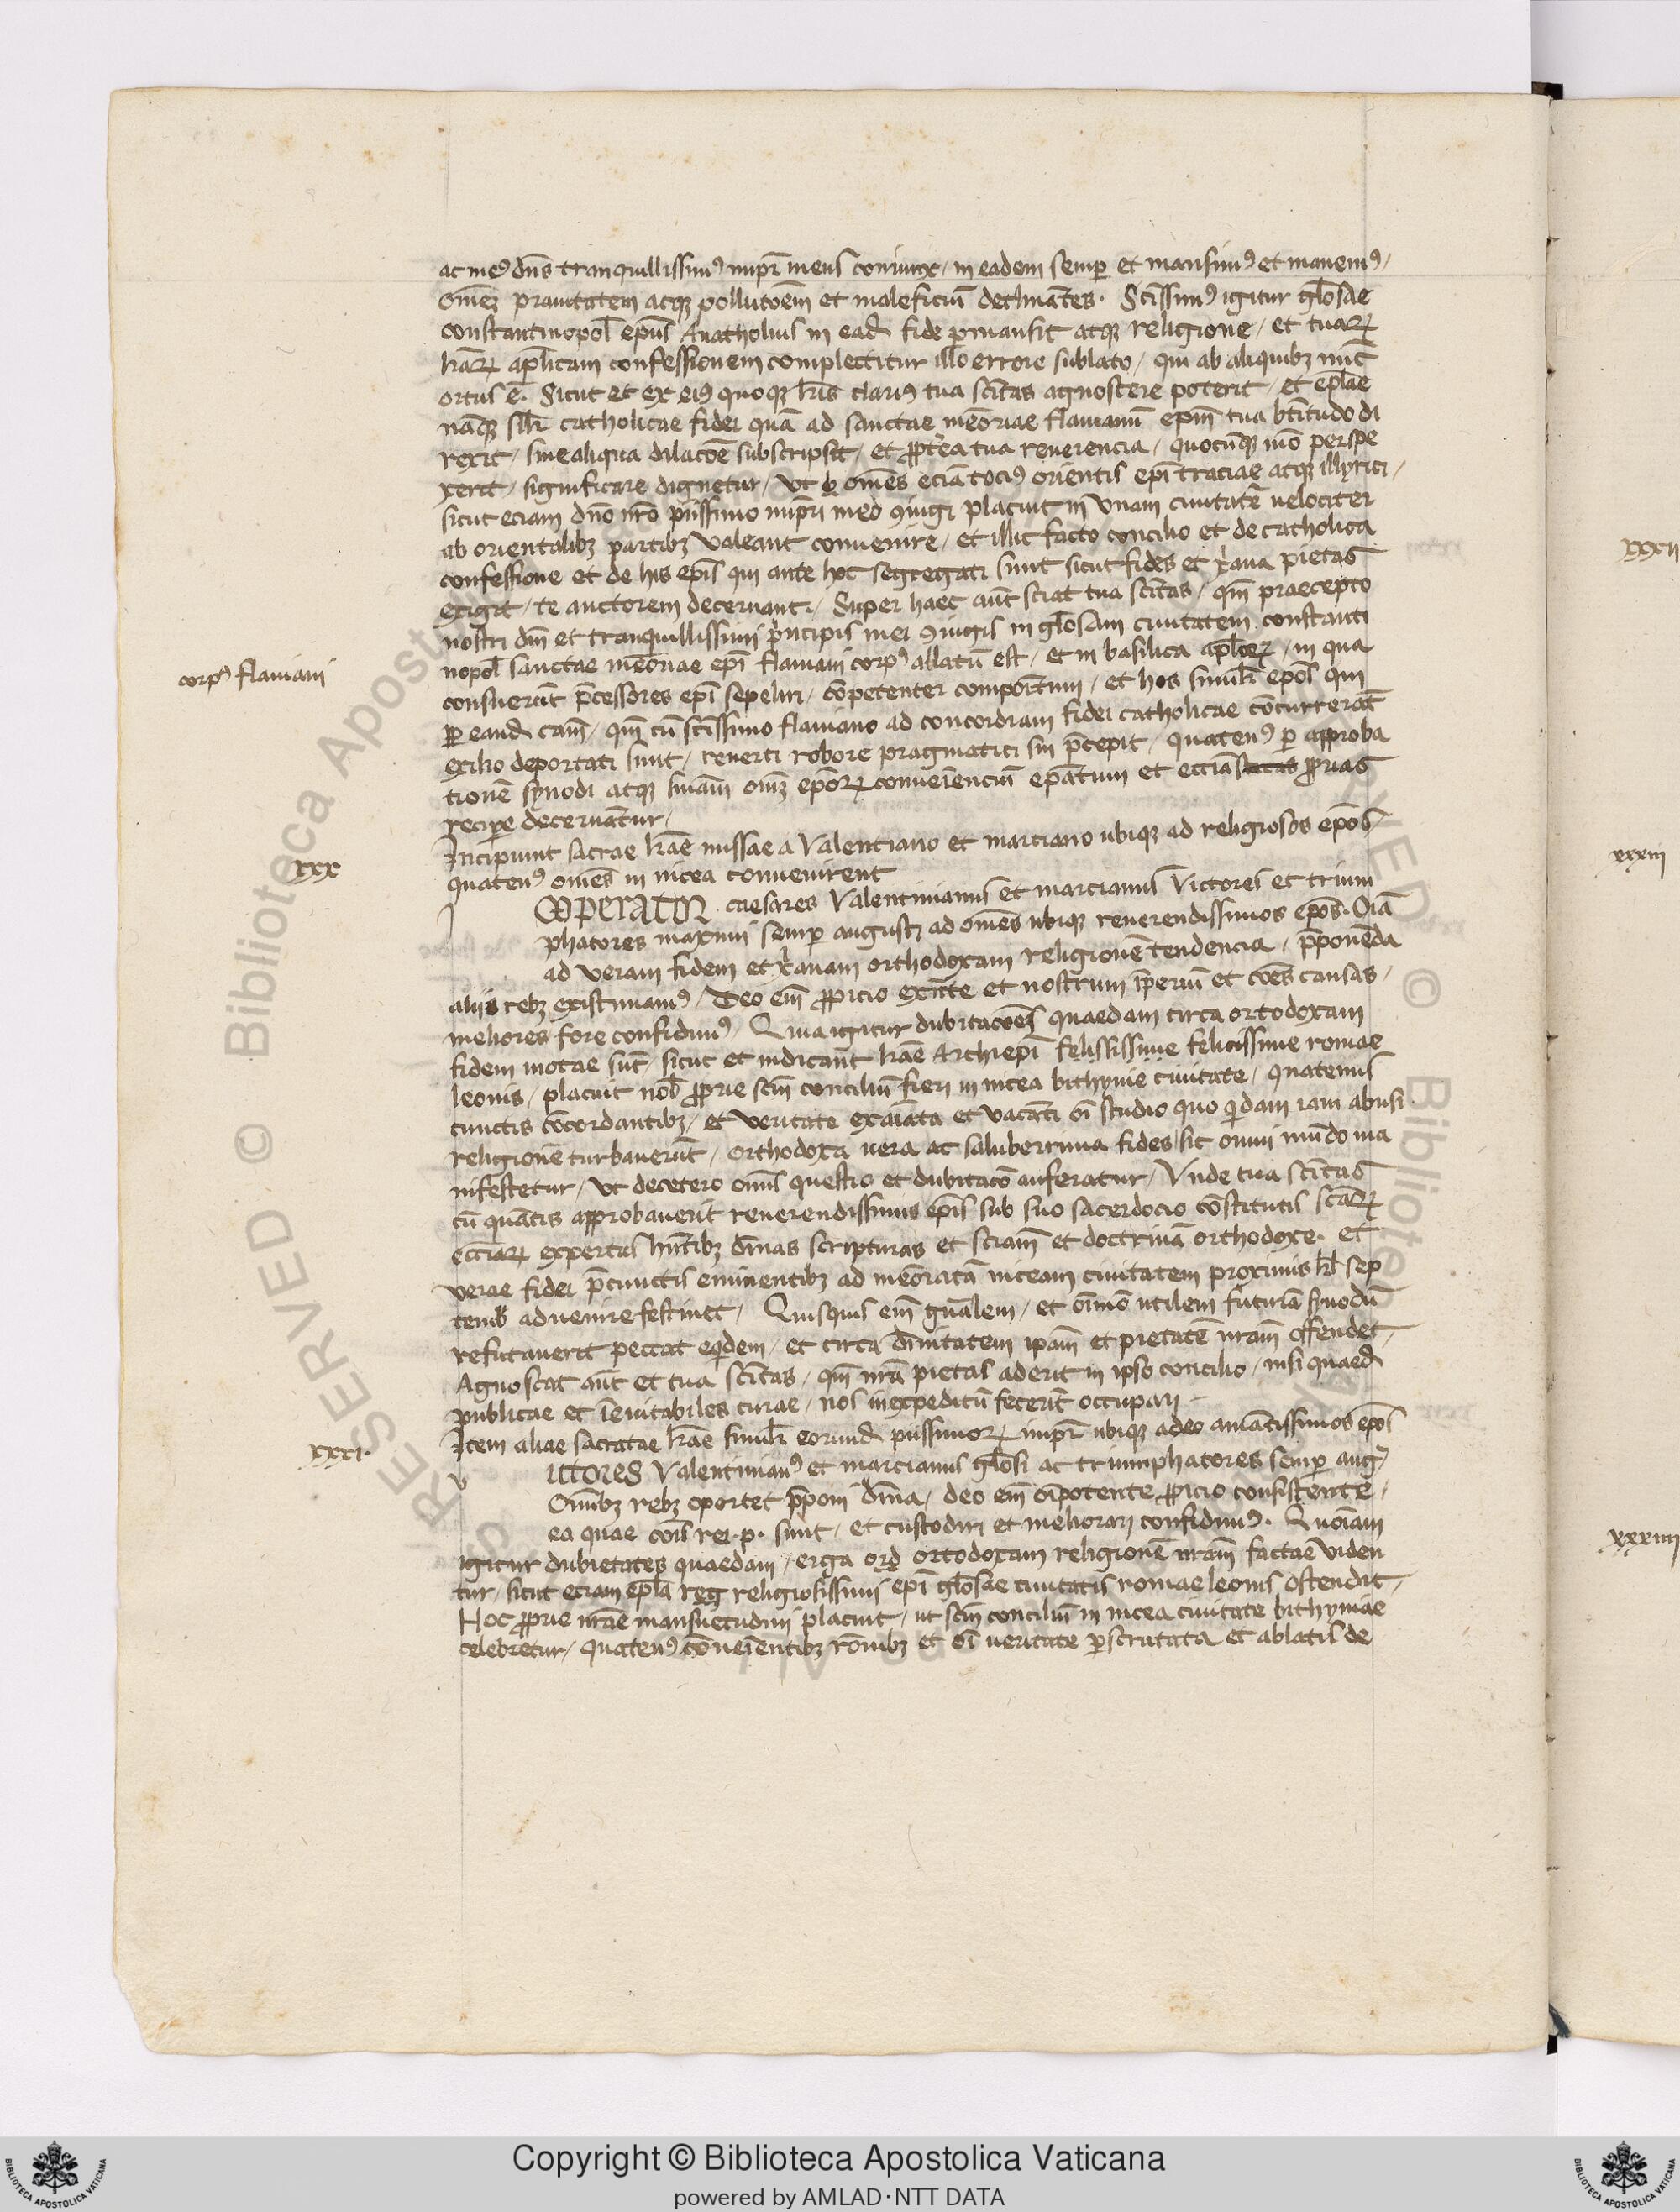 ac meꝰ dn̄s tranquillissimꝰ imꝑr meus coniunx / in eadem semꝑ et mansimꝰ et manemꝰ /
om̄eꝫ prauitatem atqꝫ pollutōem et maleficiū declinātes · Sc̄issimꝰ igitur gl̄osae
constantinopol̄ ep̄us Anatholius in ead̄ fide ꝑmansit atqꝫ religione / et tuaꝝ
lr̄aꝝ ap̄licam confessionem complectitur illo errore sublato / qui ab aliquibꝫ nūc
ortus ē · Sicut et ex eiꝰ quoqꝫ lr̄is clariꝰ tua sc̄itas agnoscere poterit / et ep̄lae
nāqꝫ sil̄r catholicae fidei quā ad sanctae mēoriae flauianū ep̄m tua bt̄itudo di
rexit / sine aliqua dilacōe subscripsit / et ꝓpt̄ea tua reuerencia / quocūqꝫ mō perspe
xerit / significare dignetur / vt om̄es eciā tociꝰ orientis ep̄i traciae atqꝫ illyrici /
sicut eciam dn̄o nr̄o piissimo imꝑri meo ꝯiugi placuit in vnam ciuitatē uelociter
ab orientalibꝫ partibꝫ valeant conuenire / et illic facto concilio et de catholica
confessione et de his ep̄is qui ante hoc segregati sunt sicut fides et xp̄iana pietas
exigit / te auctorem decernant / Super haec aūt sciat tua sc̄itas / qm̄ praecepto
nostri dn̄i et tranquillissimi pͥncipis mei ꝯiugis in gl̄osam ciuitatem constanti
nopol̄ sanctae mēoriae ep̄i flauiani corpꝰ allatū est / et in basilica ap̄loꝝ / in qua
consuerūt p̄cessores ep̄i sepeliri / cōpetenter compoītum / et hos simil̄r ep̄os qui
ꝑ eand̄ cām / qm̄ cū sc̄issimo flauiano ad concordiam fidei catholicae cōcurrerāt
exilio deportati sunt / reuerti robore pragmatici sui p̄cepit / quatenꝰ ꝑ approba
tionē synodi atqꝫ sn̄iam om̄iꝫ ep̄oꝝ conueīenciū ep̄atum et ecc̄ias ꝓprias
recipe decernātur /
Incipiunt sacrae lr̄ae missae a Valentiano et marciano ubiqꝫ ad religiosos ep̄os /
quatenꝰ om̄es in nicea conuenirent
I
mperator · caesares Valentinianus et marcianus Victores et trium
phatores maximi semꝑ augusti ad om̄es ubiqꝫ reuerendissimos ep̄os · Oīa
ad veram fidem et xp̄ianam orthodoxam religionē tendencia / p̄ponēda
aliis rebꝫ existimamꝰ / Deo em̄ ꝓpicio exn̄te et nostrum īperiū et cōes causas /
meliores fore confidimꝰ / Quia igitur dubitacōes quaedam circa ortodoxam
fidem motae sūt / sicut et indicant lr̄ae Archiep̄i felissime felicissime romae
leonis / placuit nob̄ ꝓprie sc̄m conciliū fieri in nicea bithynie ciuitate / quatenus
cunctis cōcordantibꝫ / et veritate exaīata et vacāti oī studio quo qͥdam iam abusi
religionē turbauerūt / orthodoxa uera ac saluberrima fides / sit omni mūdo ma
nifestetur / vt decetero omīs questio et dubitacō auferatur / Vnde tua sc̄itas
cū quātis approbauerit reuerendissimis ep̄is sub suo sacerdocio cōstitutis sc̄aꝝ
ecc̄iaꝝ expertus hn̄tibꝫ diuīas scripturas et sciam̄ et doctrinā orthodoxe · et
verae fidei p̄cunctis eminentibꝫ ad mēoratā niceam ciuitatem proximis kl̄ sep
temb̄ aduenire festinet / Quisquis em̄ gn̄alem / et oīmō utilem futurā synodū
refutauerit peccat eqͥdem / et circa diuīitatem ipam̄ et pietatē nr̄am offendet /
Agnoscat aūt et tua sc̄itas / qm̄ nr̄a pietas aderit in ipso concilio / nisi quaed̄
publicae et īeuitabiles curae / nos inexpeditū fecerīt occupari
Item aliae sacratae lr̄ae simil̄r eorund̄ piissimoꝝ imꝑr ubiqꝫ adeo amātissimos ep̄os
v
ictores Valentinianꝰ et marcianus gl̄osi ac triumphatores semꝑ aug̾
Omībꝫ rebꝫ oportet p̄poni diuīa / deo em̄ oīpotente ꝓpicio consistente /
ea quae cōis rei · p · sunt / et custodiri et meliorari confidimꝰ · Quoniam
igitur dubietates quaedam / erga ord ortodoxam religionē nr̄am factae viden
tur / sicut eciam ep̄la reg religiosissimi ep̄i gl̄osae ciuitatis romae leonis ostendit /
Hoc ꝓprie nr̄ae mansuetudini placuit / ut sc̄m conciliū in nicea ciuitate bithyniae
celebretur / quatenꝰ cōueīentibꝫ rōnibꝫ et oī ueritate ꝑscrutata et ablatis de
corpꝰ flauiani
xxx
xxxi ·
xxxii
xxxiii
xxxiiii
RESERVED © Biblioteca Apostolica Vaticana
Copyright © Biblioteca Apostolica Vaticana
powered by AMLAD · NTT DATA
BIBLIOTECA APOSTOLICA VATICANA
BIBLIOTECA APOSTOLICA VATICANA